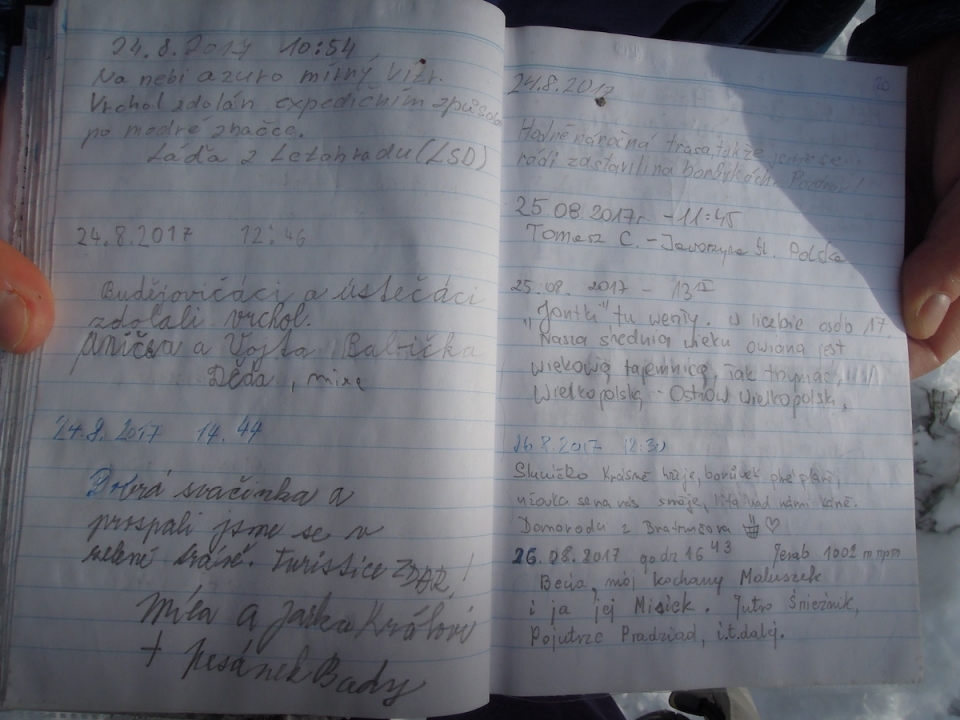 24.8.2017 10:54
Na nebi azuro mírný vítr.
Vrchol zdolán expedičním
po modré značce.
Láďa z Letohradu (LSD)
24.8.2017 12:46
Budějovičáci a ústečáci
zdolali vrchol.
Anička a Vojta Babička
Děda,
24.8.2017 14.44
Dobrá svačinka a
prospali jsme se v
zelené trávě. Turistice ZDAR!
Míla a Jarka Královi
+ pesánek Bady
24.8.2017
Hodně náročná trasa, takže jsme se
rádi zastavili na borůvkách.
25.08.2017r. - 11:45
Tomasz C. - Jaworzyna Śl. Polska
25.08.2017 - 13
"Jontki" tu weszły. W liczbie osób 17
Nasza średnia wieku owiana jest
wiekową tajemnicą, tak trzymać,
Wielkopolska - Ostrów Wielkopolski,
26.8.2017 12:30
Sluníčko krásně hřeje, borůvek plné
na nás směje, nad námi káně.
z Bratrušova ♡
26.08.2017 godz 16 43 Jeřab 1002 m npm
Becia, mój kochany Maluszek
i ja jej Misiek. Jutro Śnieżnik,
Pojutrze Pradziad, i.t.dalej.